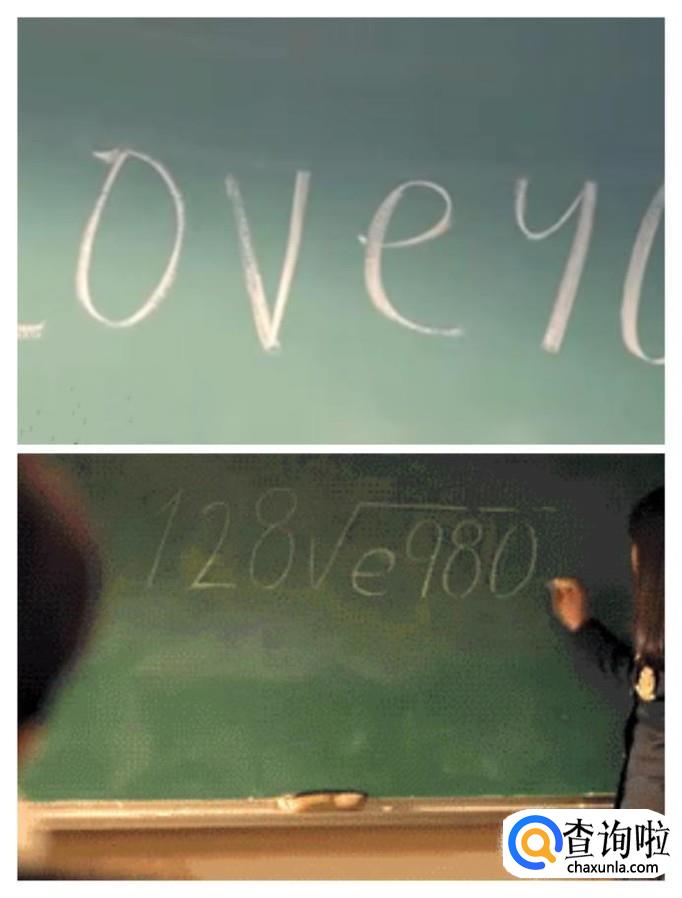 Lovey
128√e980
查询啦
chaxunla.com